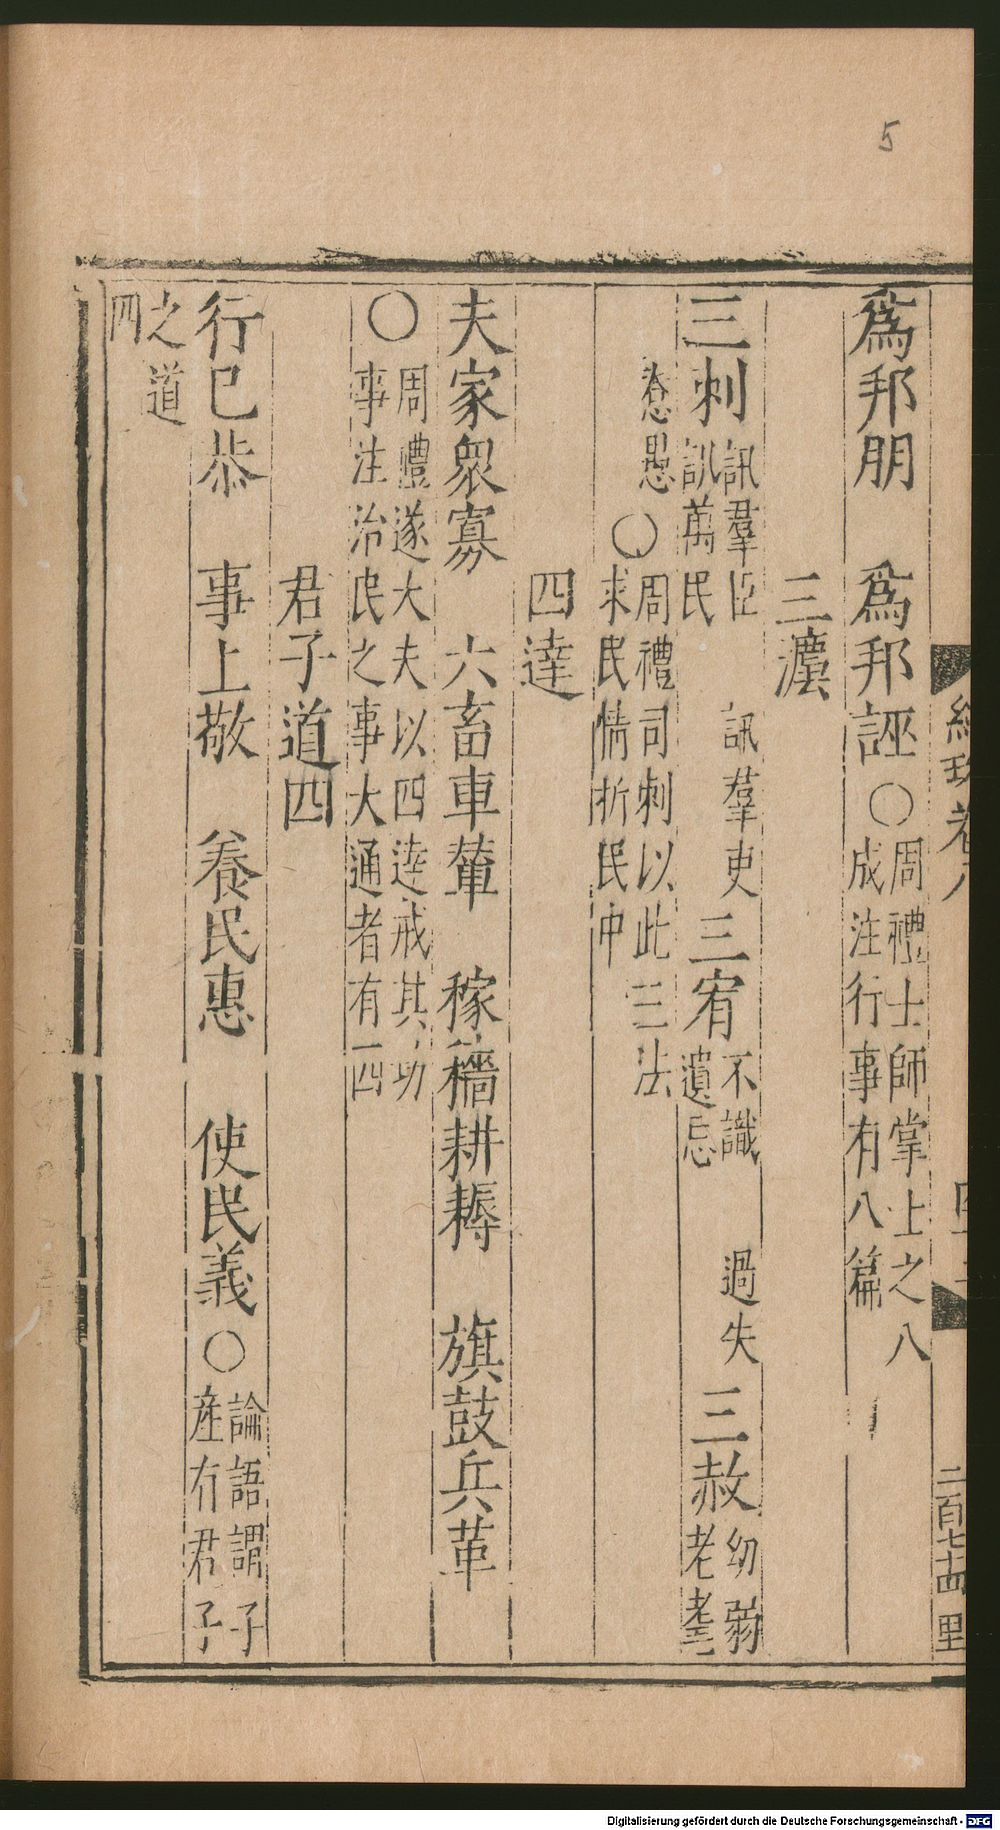 5
爲邦朋　爲邦誣〇周禮士師掌士之八
成注行事有八篇
三灋
三刺訊羣臣　訊羣吏
訊萬民
三宥不識　過失
遺忘
三赦幼弱　老耄
惷愚〇周禮司刺以此三法
求民情折民中
四達
夫家衆寡　六畜車輦　稼穡耕耨　旗鼓兵革
〇周禮遂大夫以四達戒其功
事注治民之事大通者有四
君子道四
行已恭　事上敬　養民惠　使民義〇論語謂子
産有君子
之道
四
二百七十四
里
Digitalisierung gefördert durch die Deutsche Forschungsgemeinschaft - DFG